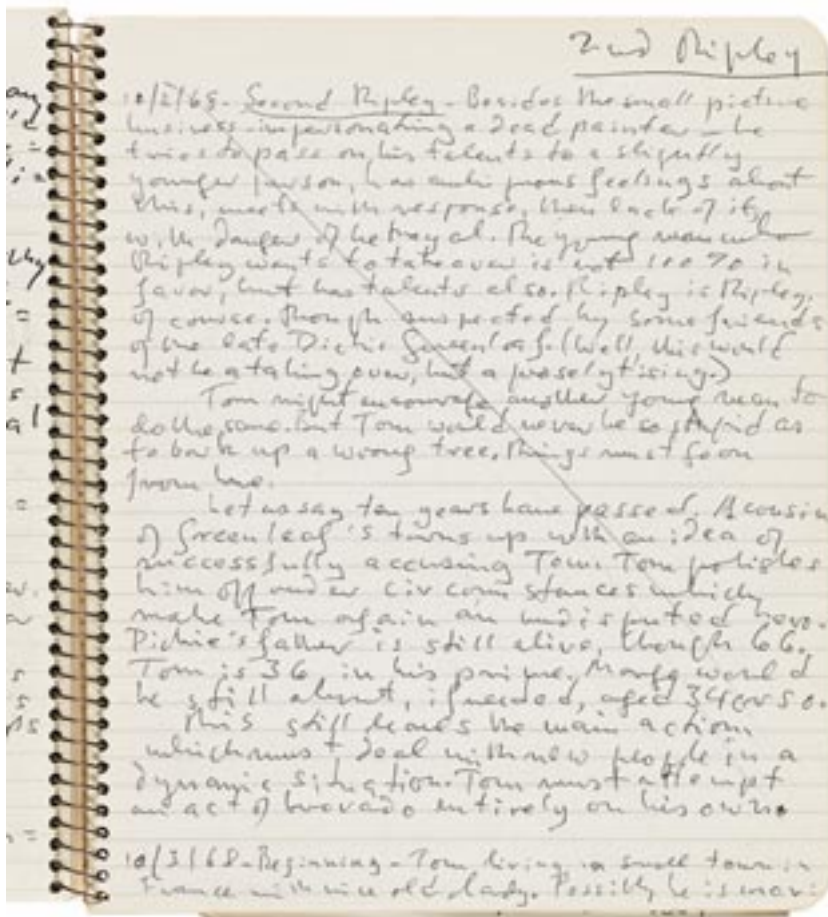 2nd Ripley
10/2/68 - Second Ripley - Besides the small picture
business - impersonating a dead painter - he
tries to pass on his talents to a slightly
younger person, has ambiguous feelings about
this, meets with response, then lack of it,
with danger of betrayal. The young man whom
Ripley wants to take over is not 100% in
favor, but has talents also. Ripley is Ripley,
of course. Though suspected by some friends
of the late Dickie Greenleaf. (Well, this would
not be a taking over, but a proselytising.)
Tom might encourage another young man to
do the same. But Tom would never be so stupid as
to bark up a wrong tree. Things must go on
from here.
Let us say ten years have passed. A cousin
of Greenleaf's turns up with an idea of
successfully accusing Tom. Tom polishes
him off under circumstances which
make Tom again an undisputed hero.
Dickie's father is still alive, though 66.
Tom is 36 in his prime. Marge would
be still about, if needed, aged 34 or so.
This still leaves the main action
which must deal with new people in a
dynamic situation. Tom must attempt
an act of bravado entirely on his own.
10/3/68 - Beginning - Tom living in small town in
France with nice old lady. Possibly he is
any
=
why
=
t
s
al
=
s
s
=